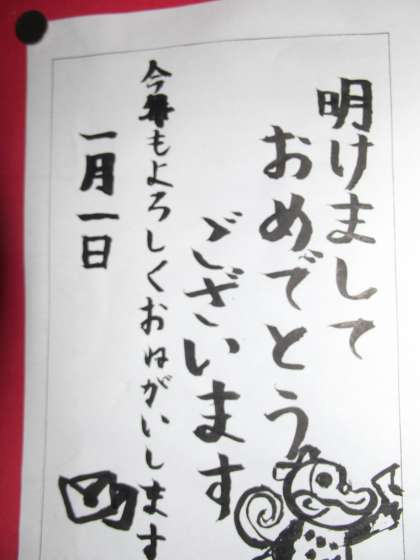 明けまして
おめでとう
ございます
今年もよろしくおねがいします
一月一日